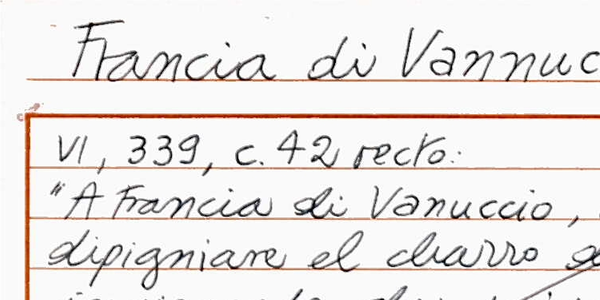 Francia di Vannuc
VI, 339, c. 42 recto:
"A Francia di Vanuccio,
dipigniare el charro